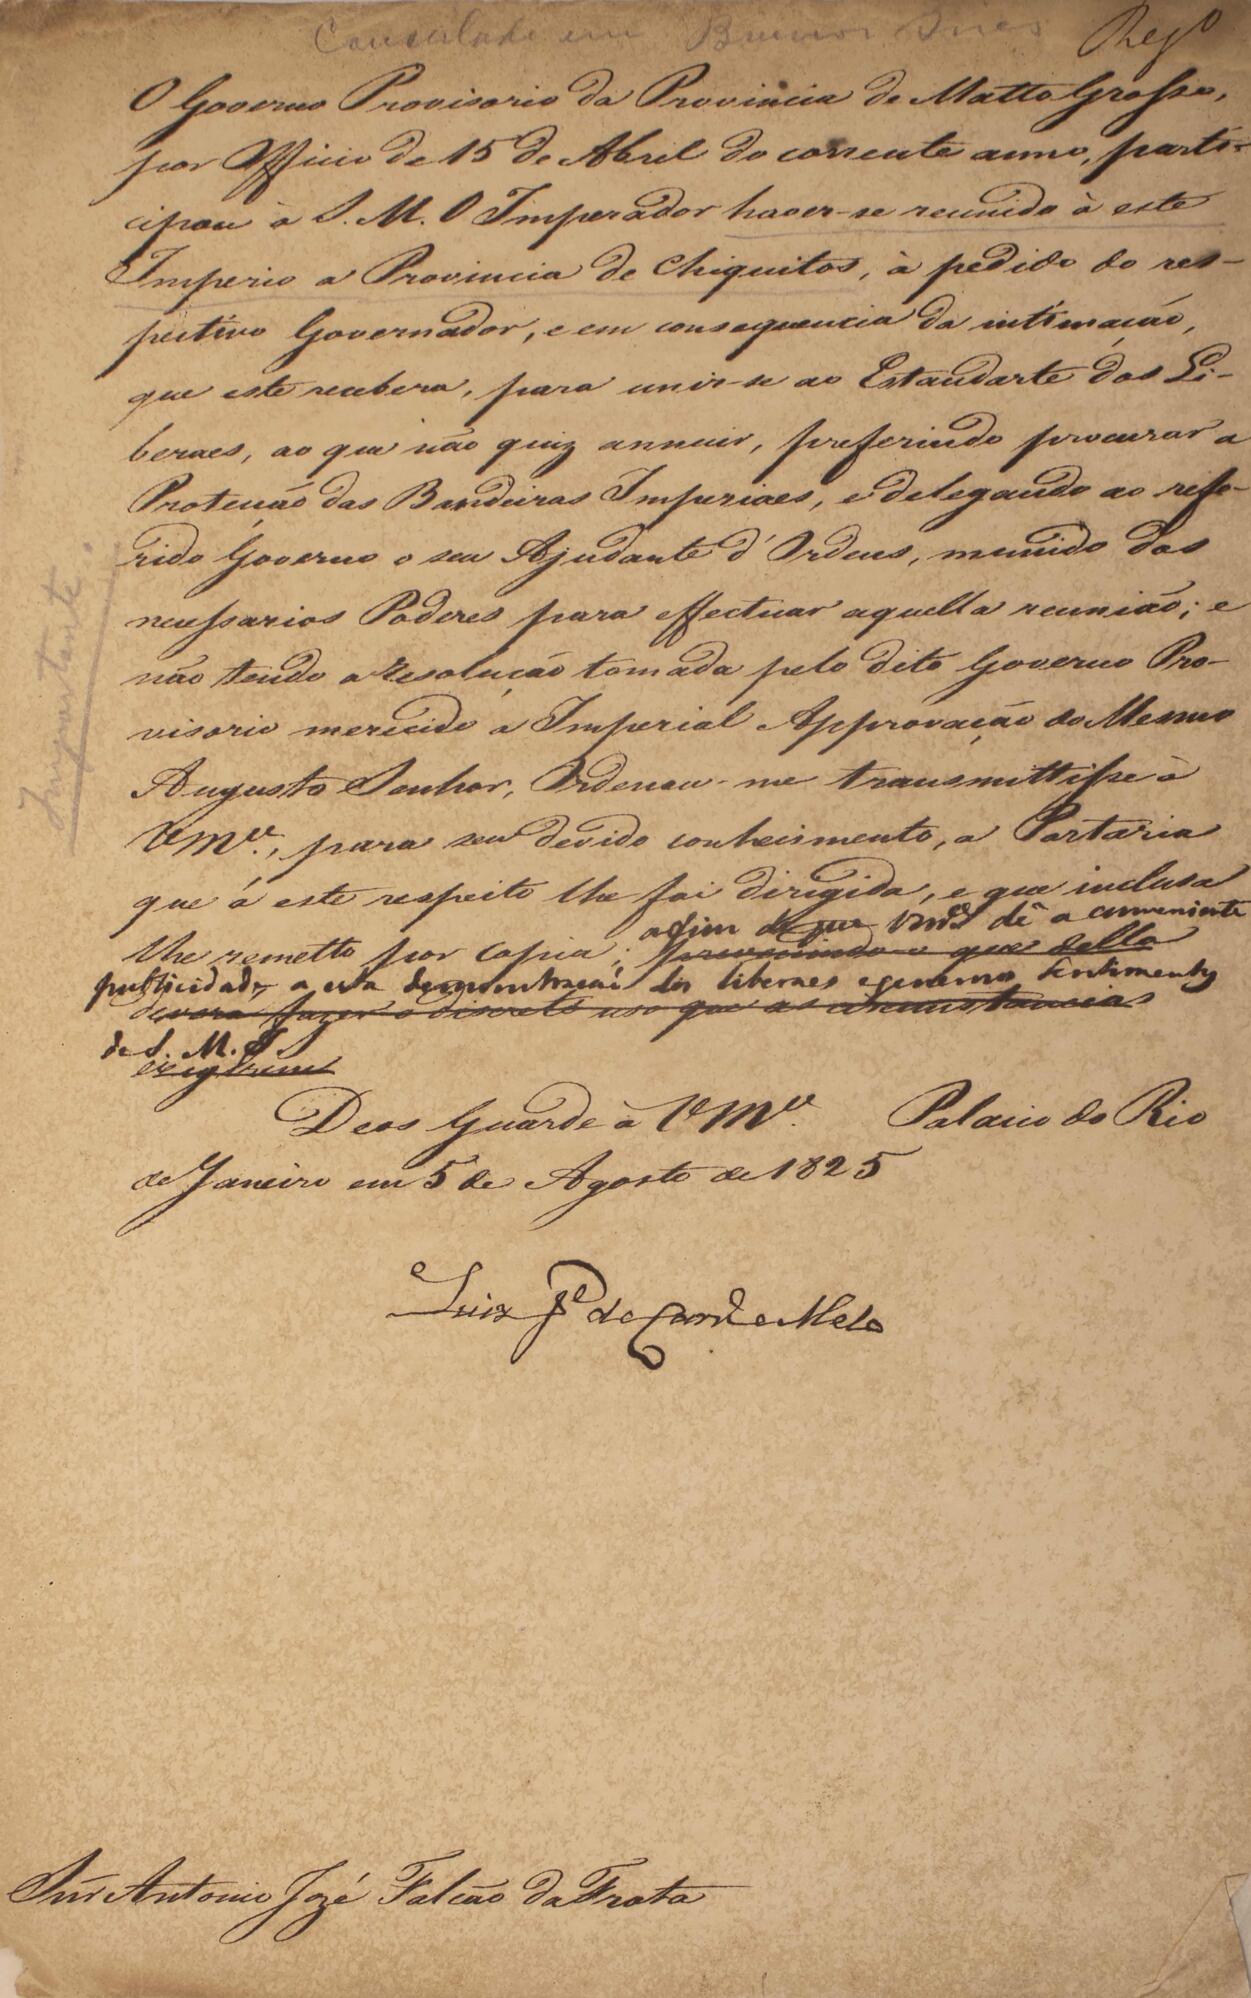 Consulado em Buenos Aires
Reg.º
O Governo Provisorio da Provincia de Matto Grosso,
por Officio de 15 de Abril do corrente anno, parti-
cipou à S. M. O Imperador haver-se reunido à este
Imperio a Provincia de Chiquitos, à pedido do res-
pectivo Governador, e em consequencia da intimação,
que este recebera, para unir-se ao Estandarte dos Li-
beraes, ao que não quiz annuir, preferindo procurar a
Protecção das Bandeiras Imperiaes, e delegando ao refe-
rido Governo o seu Ajudante d'Ordens, munido dos
necessarios Poderes para effectuar aquella reunião; e
não tendo a resolução tomada pelo dito Governo Pro-
visorio merecido a Imperial Approvação do Mesmo
Augusto Senhor, Ordenou-me transmittisse à
VMce., para seu devido conhecimento, a Portaria
que á este respeito lhe foi dirigida, e que inclusa
afim de que Vmce dê a conveniente
lhe remetto por copia; prevenindo-o que della
publicidade a esta demonstração dos liberaes e generosos sentimentos
devera fazer o discreto uso que as circunstancias
de S. M. I.
exigirem
Deos Guarde à VMce. Palacio do Rio
de Janeiro em 5 de Agosto de 1825
Luiz Je de Carvo e Mello
Snr Antonio Jozé Falcão da Frota
Importante.